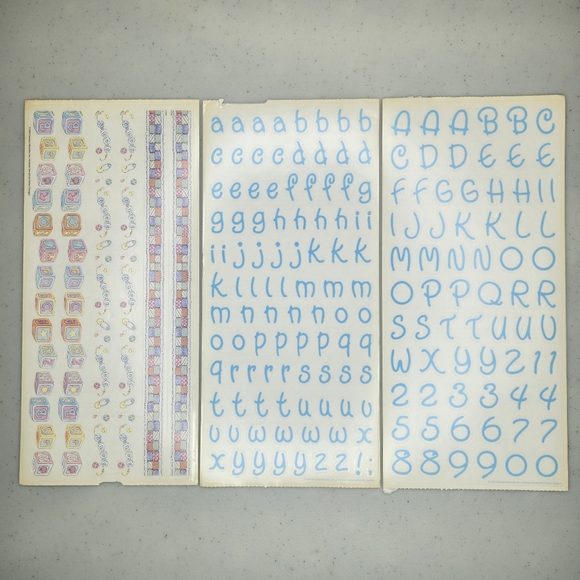 a a a a b b b b
c c c c d d d d
e e e e f f f f g
g g g h h h h i i
i i j j j j k k k
k l l l l m m m
m n n n n o o
o o p p p p q q
q r r r r s s s s
t t t t u u u v
v v w w w w x
x y y y y z z ! ;
A A A B B C
C D D E E E
F F G G H H I I
I J J K K L L
M M N N O O
O P P Q R R
S S T T U U V
W X Y Y Z 1 1
2 2 3 3 4 4
5 5 6 6 7 7
8 8 9 9 0 0